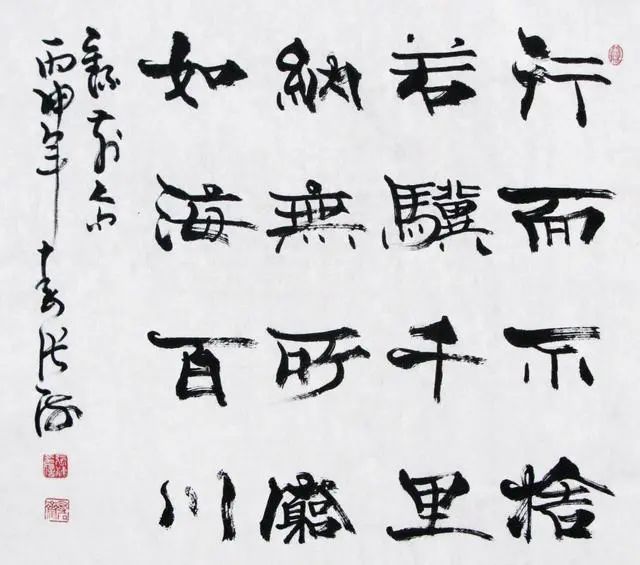 行而不捨
若驥千里
納無所窮
如海百川
丙申年